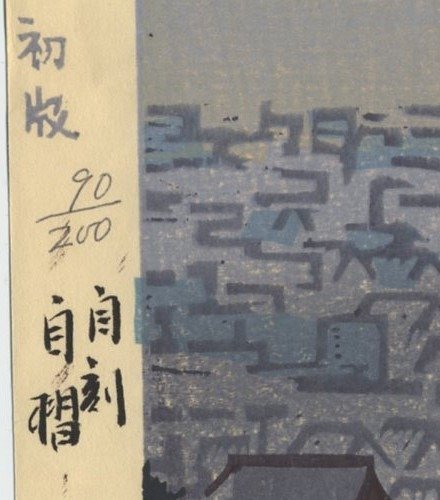 初版
90/200
自刻
自摺